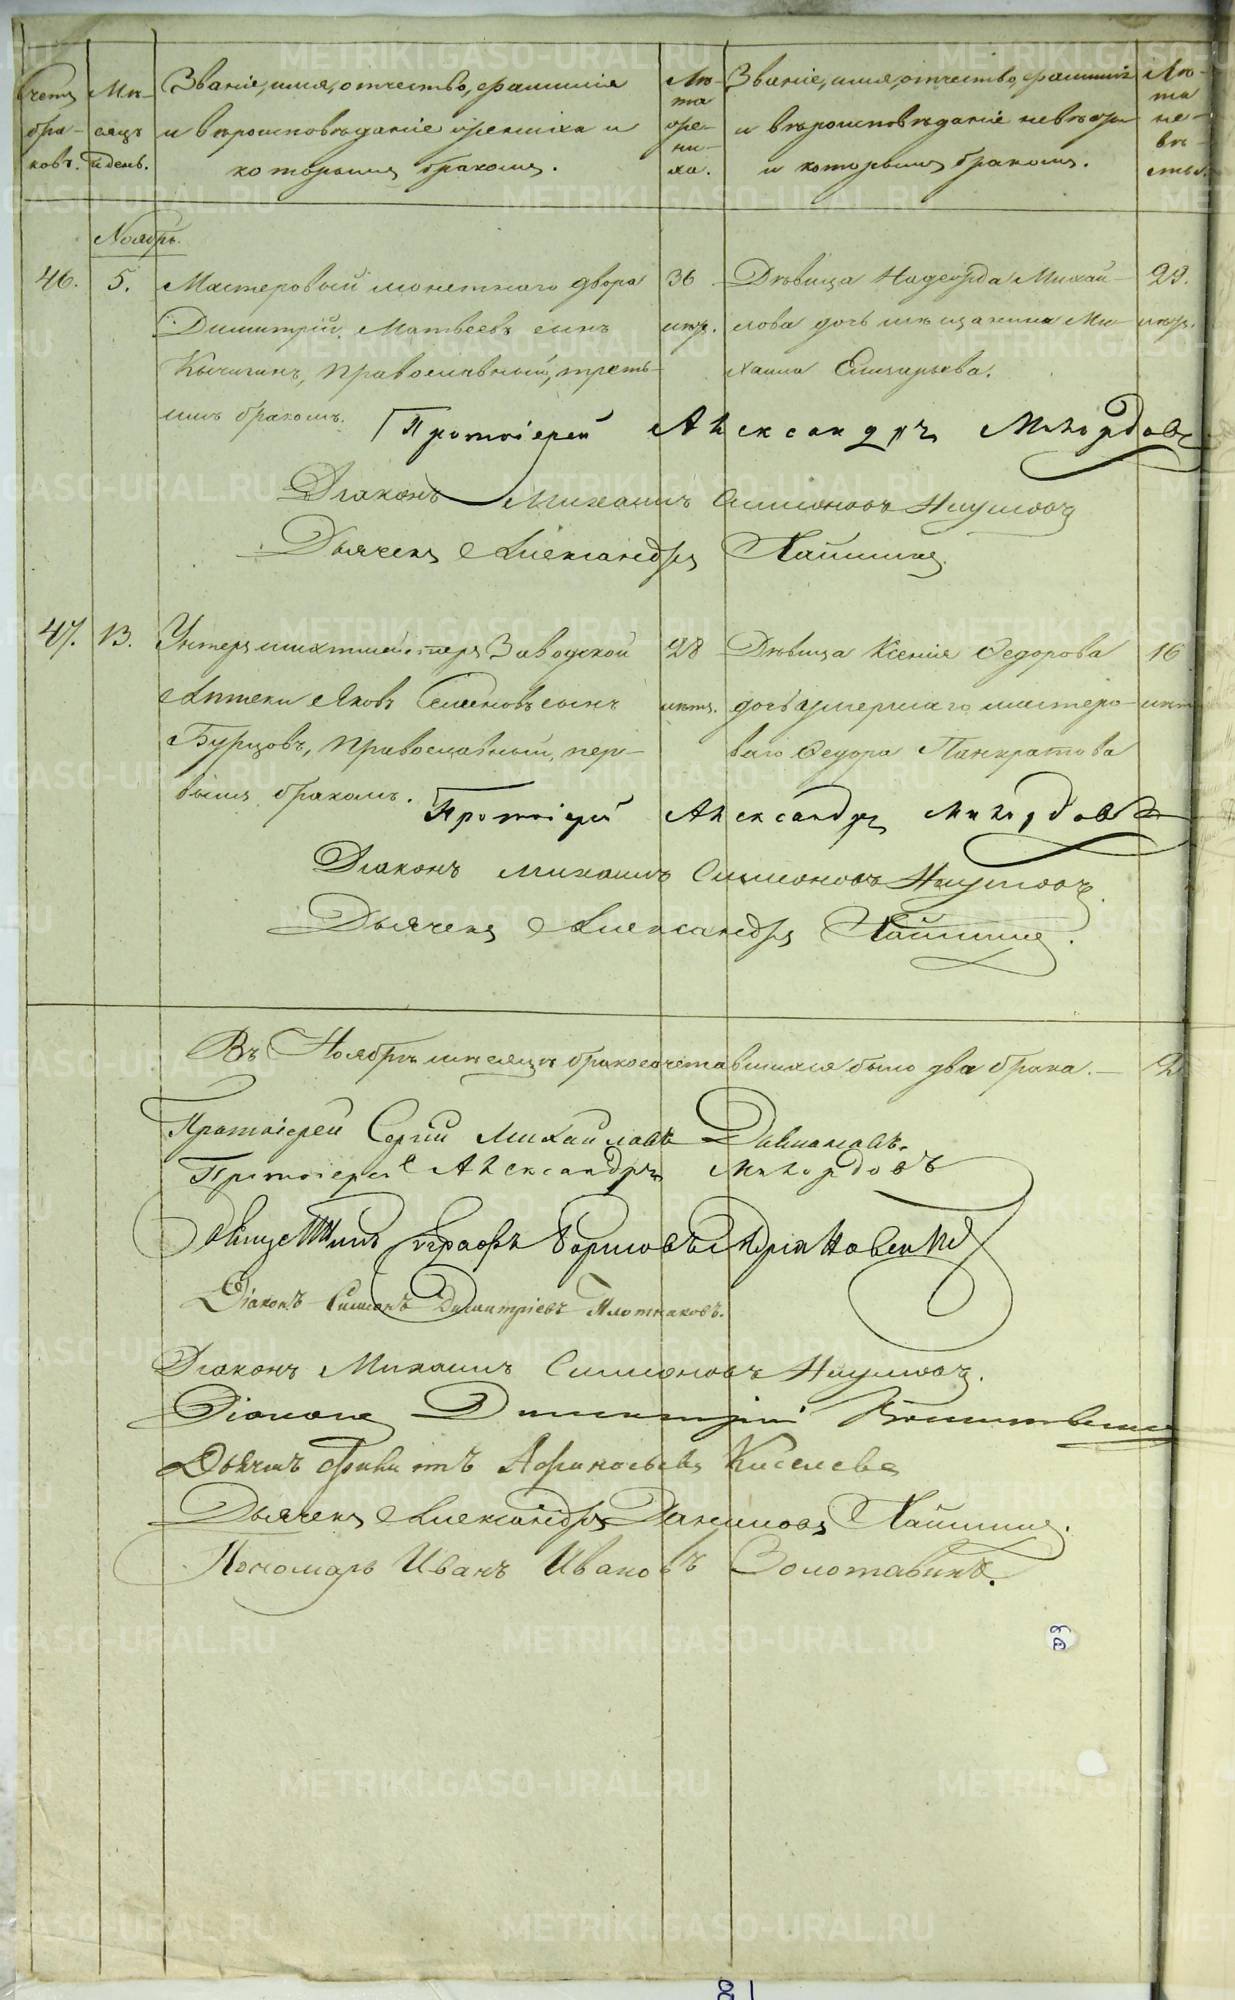 Счетъ браковъ.
Мѣсяцъ и день.
Званіе, имя, отчество, фамилія
и вѣроисповѣданіе жениха и
которымъ бракомъ.
Лѣта жениха.
Званіе, имя, отчество, фамилія
и вѣроисповѣданіе невѣсты
и которымъ бракомъ.
Лѣта невѣсты.
Ноябрь.
46. 5. Мастеровый монетнаго двора 36 Дѣвица Надежда Михай- 29.
Димитрій Матвеевъ сынъ лѣтъ. лова дочь мѣщанина Ми- лѣтъ.
Кычигинъ, православный, треть- хаила Елизарьева.
имъ бракомъ. Протоіерей Александръ
Діаконъ Михаилъ Симоновъ Наумовъ
Дьячекъ Александръ
47. 13. Унтершихтмейстеръ Заводской 28 Дѣвица Ксенія Федорова 16
Аптеки Яковъ Семеновъ сынъ лѣтъ. дочь умершаго мастеро- лѣтъ
Бурцовъ, православный, пер- ваго Федора Панкратова
вымъ бракомъ. Протоіерей Александръ
Діаконъ Михаилъ Симоновъ Наумовъ
Дьячекъ Александръ
Въ Ноябрѣ мѣсяцѣ бракосочетавшихся было два брака. — 2
Протоіерей Сергій Михайловъ
Протоіерей Александръ
Діаконъ Симеонъ Димитріевъ Плотниковъ.
Діаконъ Михаилъ Симоновъ Наумовъ.
Діаконъ Димитрій
Дьячекъ Киселевъ
Дьячекъ Александръ Даниловъ
Пономарь Иванъ Ивановъ Золотавинъ.
METRIKI.GASO-URAL.RU